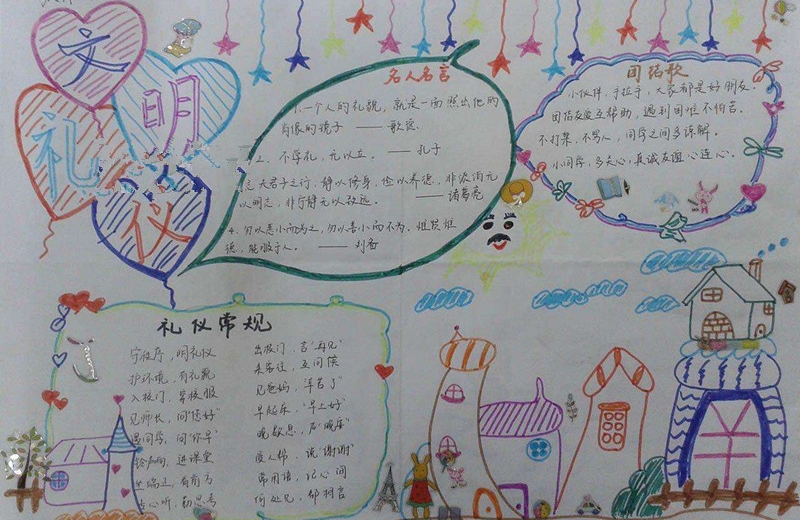 文明
礼仪
名人名言
1.一个人的礼貌，就是一面照出他的
肖像的镜子 —— 歌德
2、不学礼，无以立。 —— 孔子
3、夫君子之行，静以修身，俭以养德，非淡泊无
以明志，非宁静无以致远。 —— 诸葛亮
4.勿以恶小而为之，勿以善小而不为，惟贤惟
德，能服于人。 —— 刘备
团结歌
小伙伴，手拉手，大家都是好朋友。
团结友爱互帮助，遇到困难不怕苦。
不打架，不骂人，同学之间多谅解。
小同学，多关心，真诚友谊心连心。
礼仪常规
守秩序，明礼仪
护环境，有礼貌
入校门，穿校服
见师长，问“您好”
遇同学，问“你早”
铃声响，进课堂
坐端正，有前方
专心听，勤思考
出校门，言“再见”
来客往，互问候
见爸妈，“辛苦了”
早起床，“早上好”
晚歇息，启“晚安”
受人帮，说“谢谢”
常用语，记心间